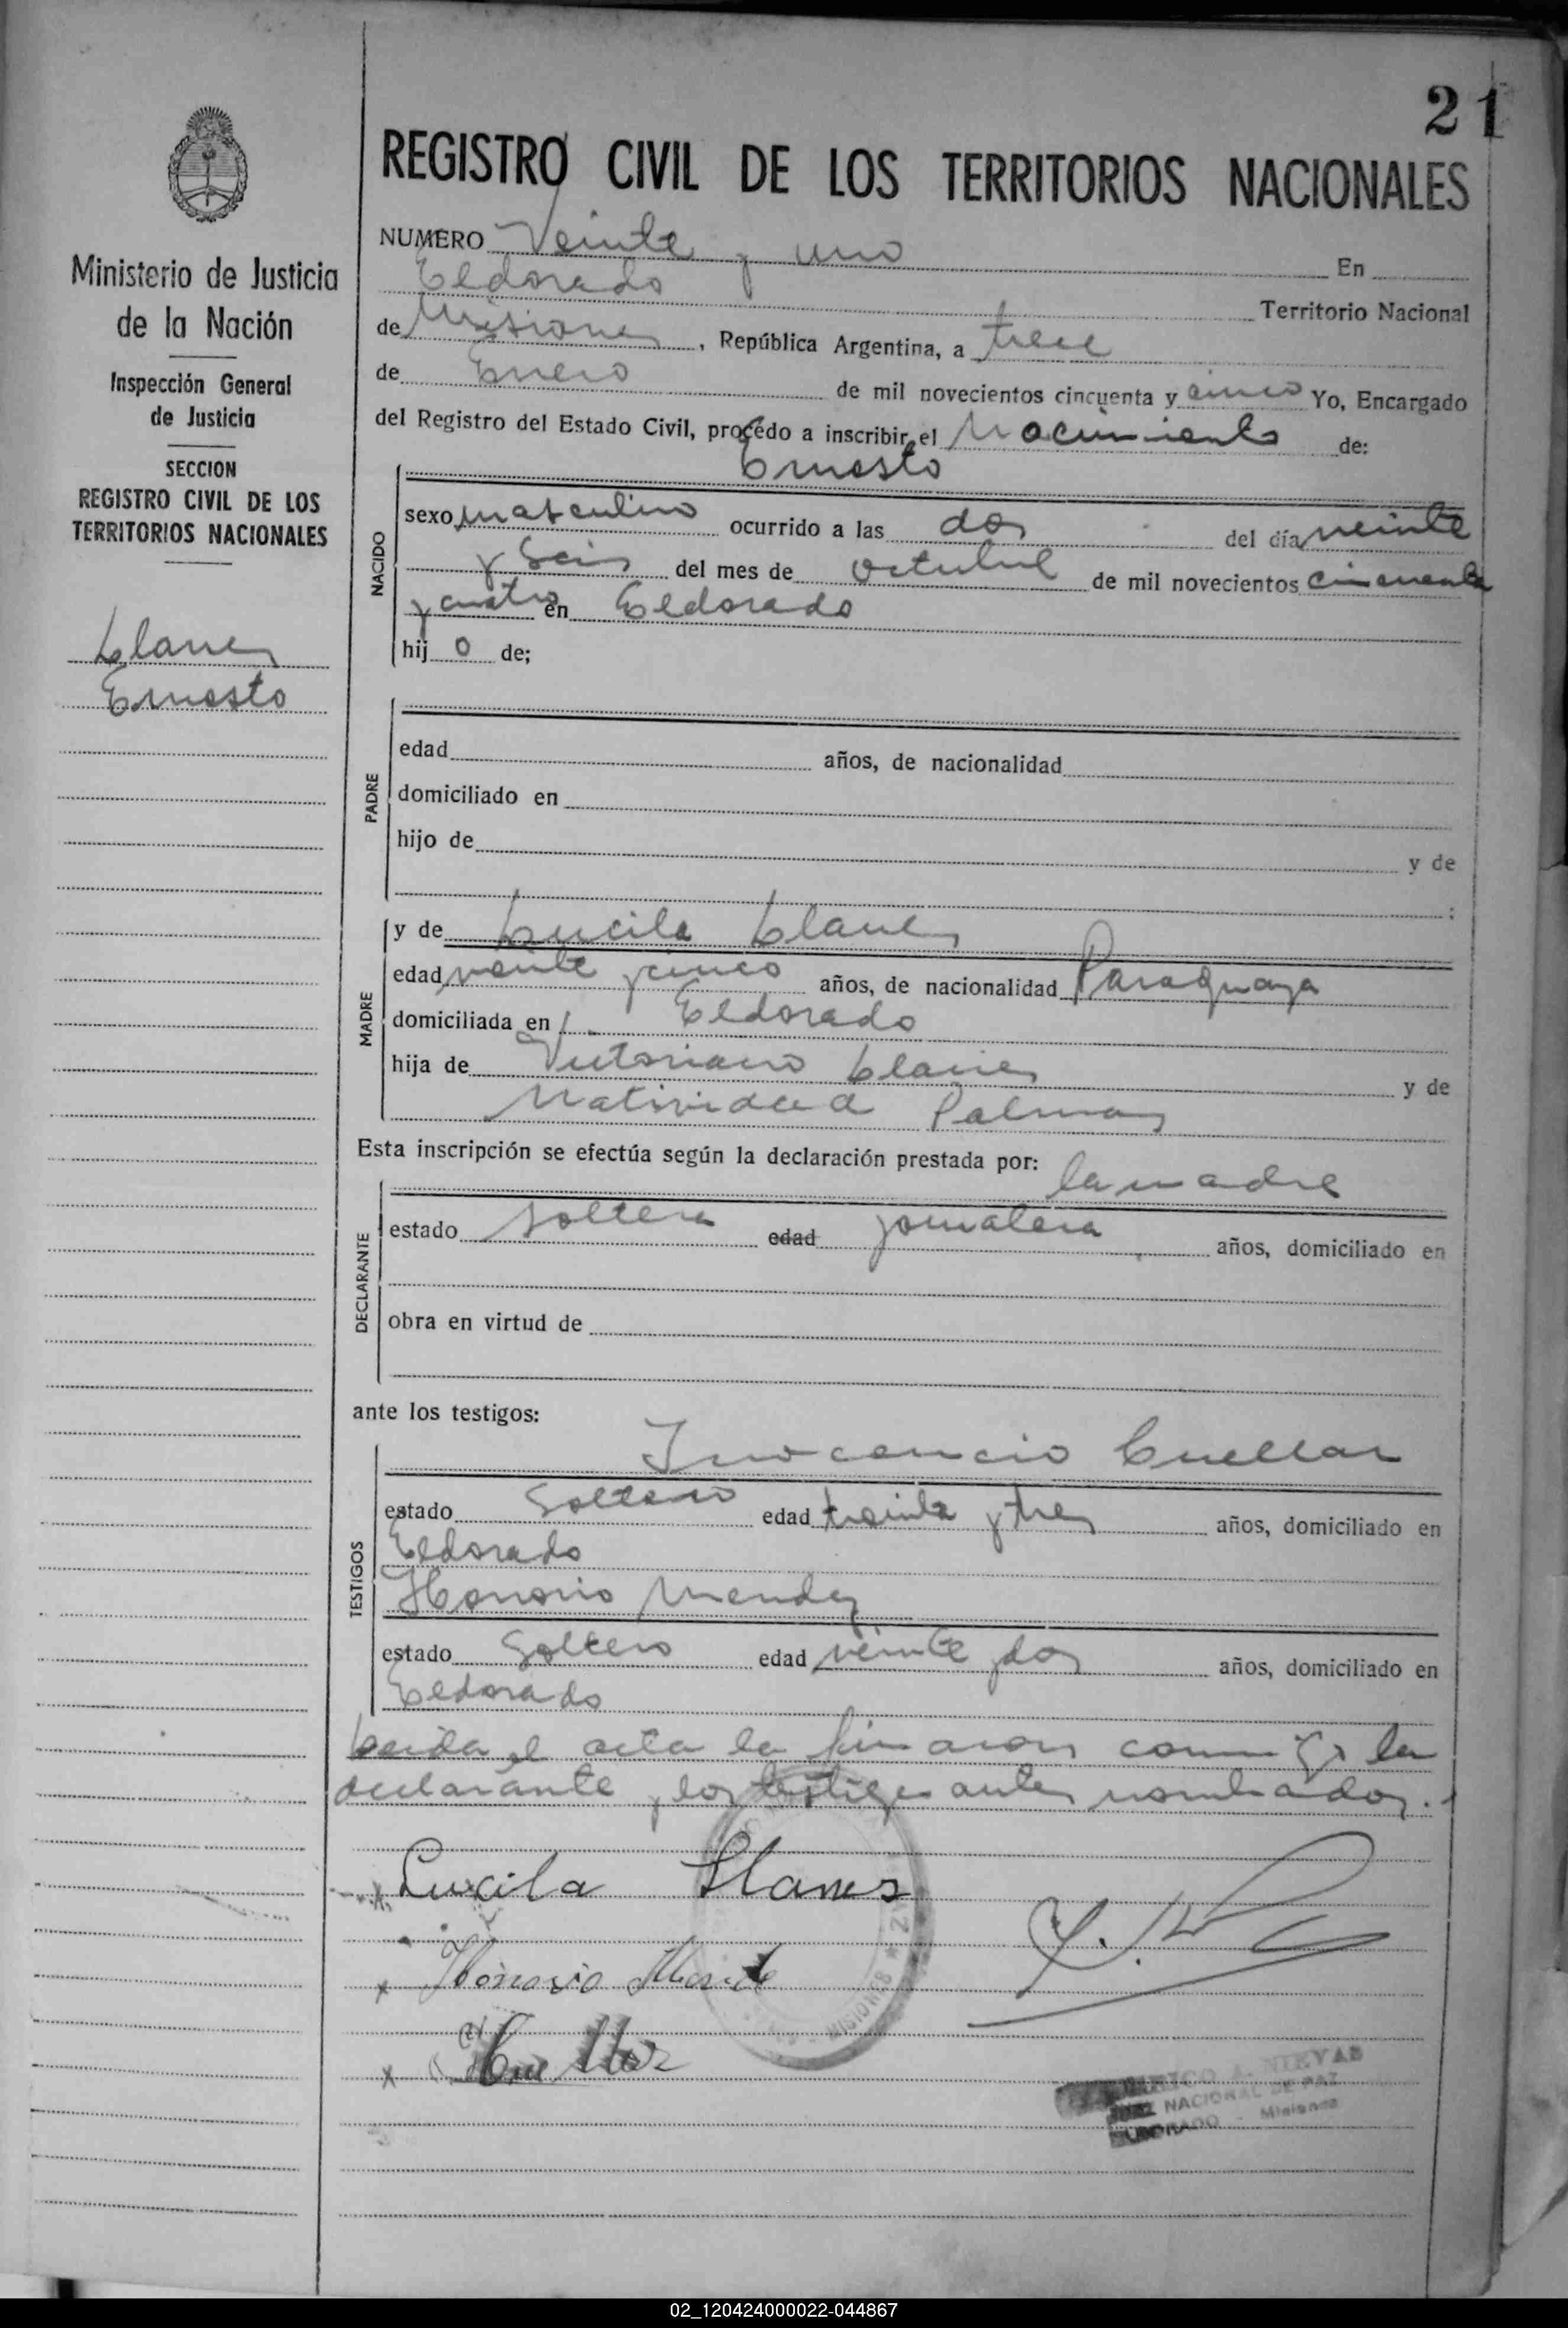 21
REGISTRO CIVIL DE LOS TERRITORIOS NACIONALES
Ministerio de Justicia
de la Nación
Inspección General
de Justicia
SECCION
REGISTRO CIVIL DE LOS
TERRITORIOS NACIONALES
Llanes
Ernesto
NUMERO Veinte y uno En
Eldorado Territorio Nacional
de Misiones, República Argentina, a trece
de Enero de mil novecientos cincuenta y cinco Yo, Encargado
del Registro del Estado Civil, procedo a inscribir el Nacimiento de:
NACIDO
Ernesto
sexo masculino ocurrido a las dos del día veinte
y seis del mes de octubre de mil novecientos cincuenta
y cuatro en Eldorado
hij o de;
PADRE
edad años, de nacionalidad
domiciliado en
hijo de y de
:
MADRE
y de Lucila Llanes
edad veinte y cinco años, de nacionalidad Paraguaya
domiciliada en Eldorado
hija de Victoriano Llanes y de
Natividad Palma
Esta inscripción se efectúa según la declaración prestada por:
la madre
DECLARANTE
estado soltera edad jornalera años, domiciliado en
obra en virtud de
ante los testigos:
TESTIGOS
Inocencio Cuellar
estado soltero edad treinta y tres años, domiciliado en
Eldorado
Honorio Mendez
estado soltero edad veinte y dos años, domiciliado en
Eldorado
Leida el acta la firmaron conmigo la
declarante y los testigos antes nombrados.
Lucila Llanes
x Honorio Mende
x Cuellar
MISIONES
A. NIEVAS
JUEZ NACIONAL DE PAZ
ELDORADO - Misiones
02_120424000022-044867